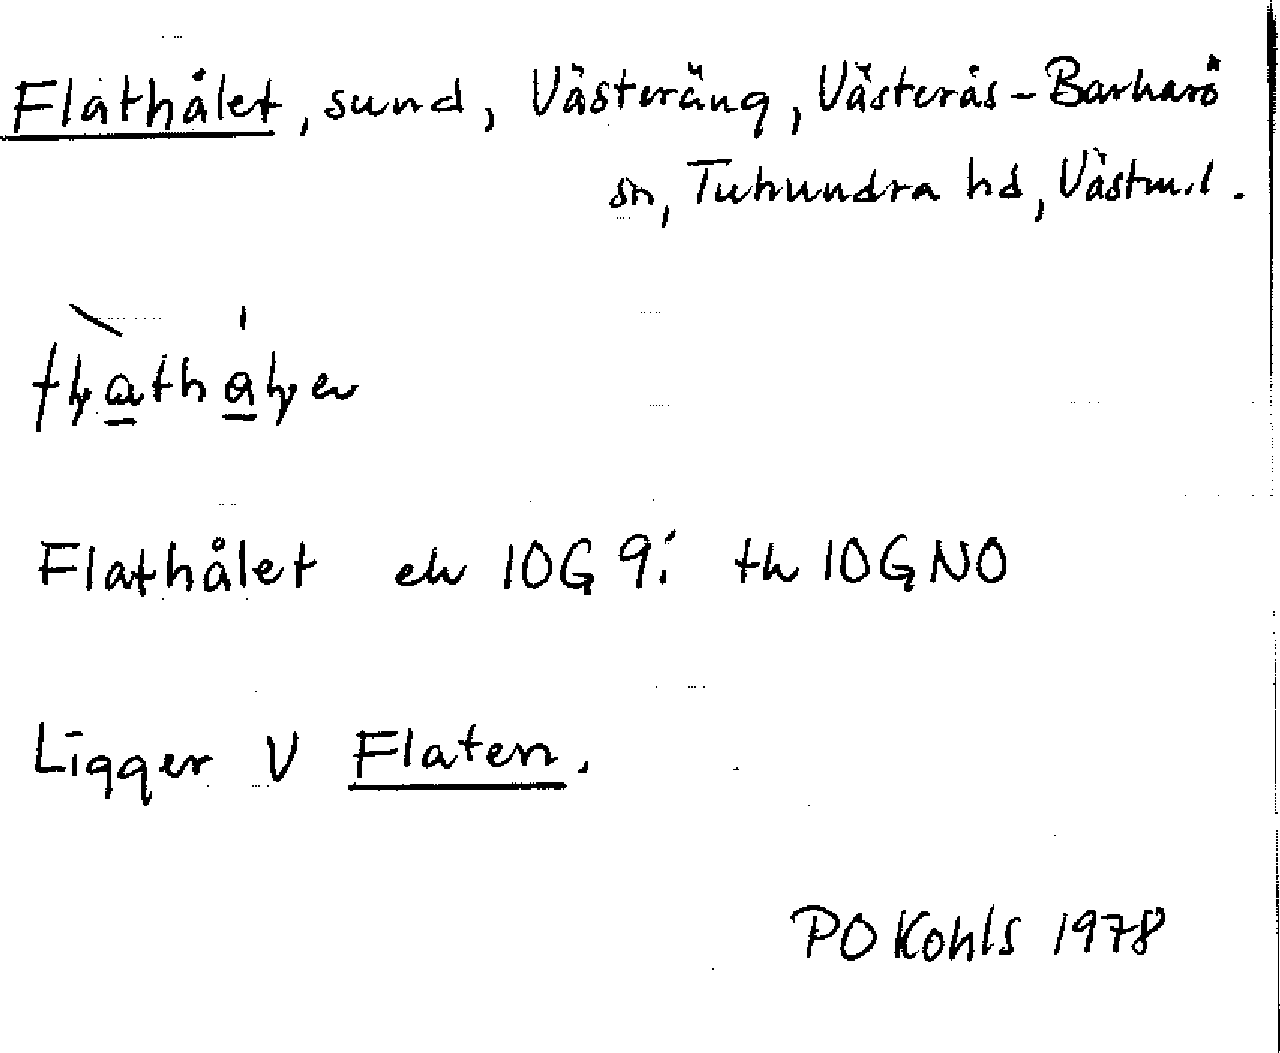 Flathålet, sund, Västeräng, Västerås-Barkarö
sn, Tuhundra hd, Västml.
Flathålet ek 10G 9i th 10G NO
Ligger V Flaten.
PO Kohls 1978